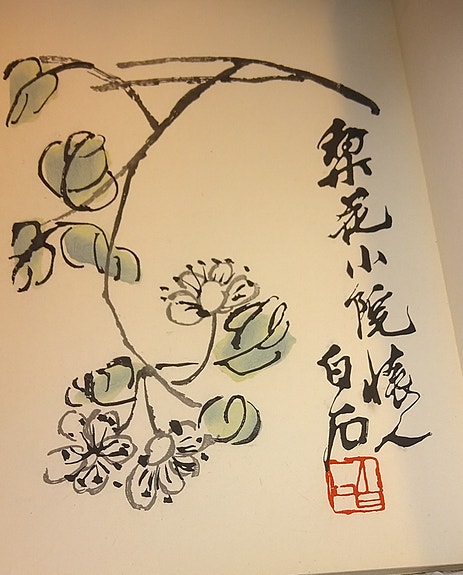 梨花小院
懷人
白石